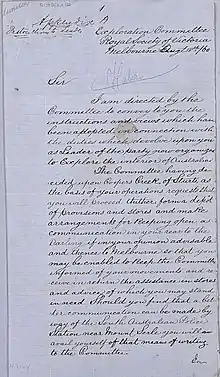 Exploration Committee
Royal Society of Victoria
Melbourne Augt
Sir
I am directed by the
Committee to convey to you the
instructions and views which have
been adopted in connection with
the duties which devolve upon you
as Leader of the party now organized
to Explore the interior of Australia
The Committee having de-
cided upon Coopers Creek, of Sturts as
the basis of your operations request that
you will proceed thither form a depôt
of provisions and stores and make
arrangements for keeping open a
communication in your rear to the
Darling if in your opinion advisable
and thence to Melbourne so that you
may be enabled to keep the Committee
informed of your movements and re-
ceive in return the assistance in stores
and advice of which you may stand
in need. Should you find that a bet-
ter communication can be made by
way of the South Australian Police
Station near Mount Serle you will a-
vail yourself of that means of writing
to the Committee.